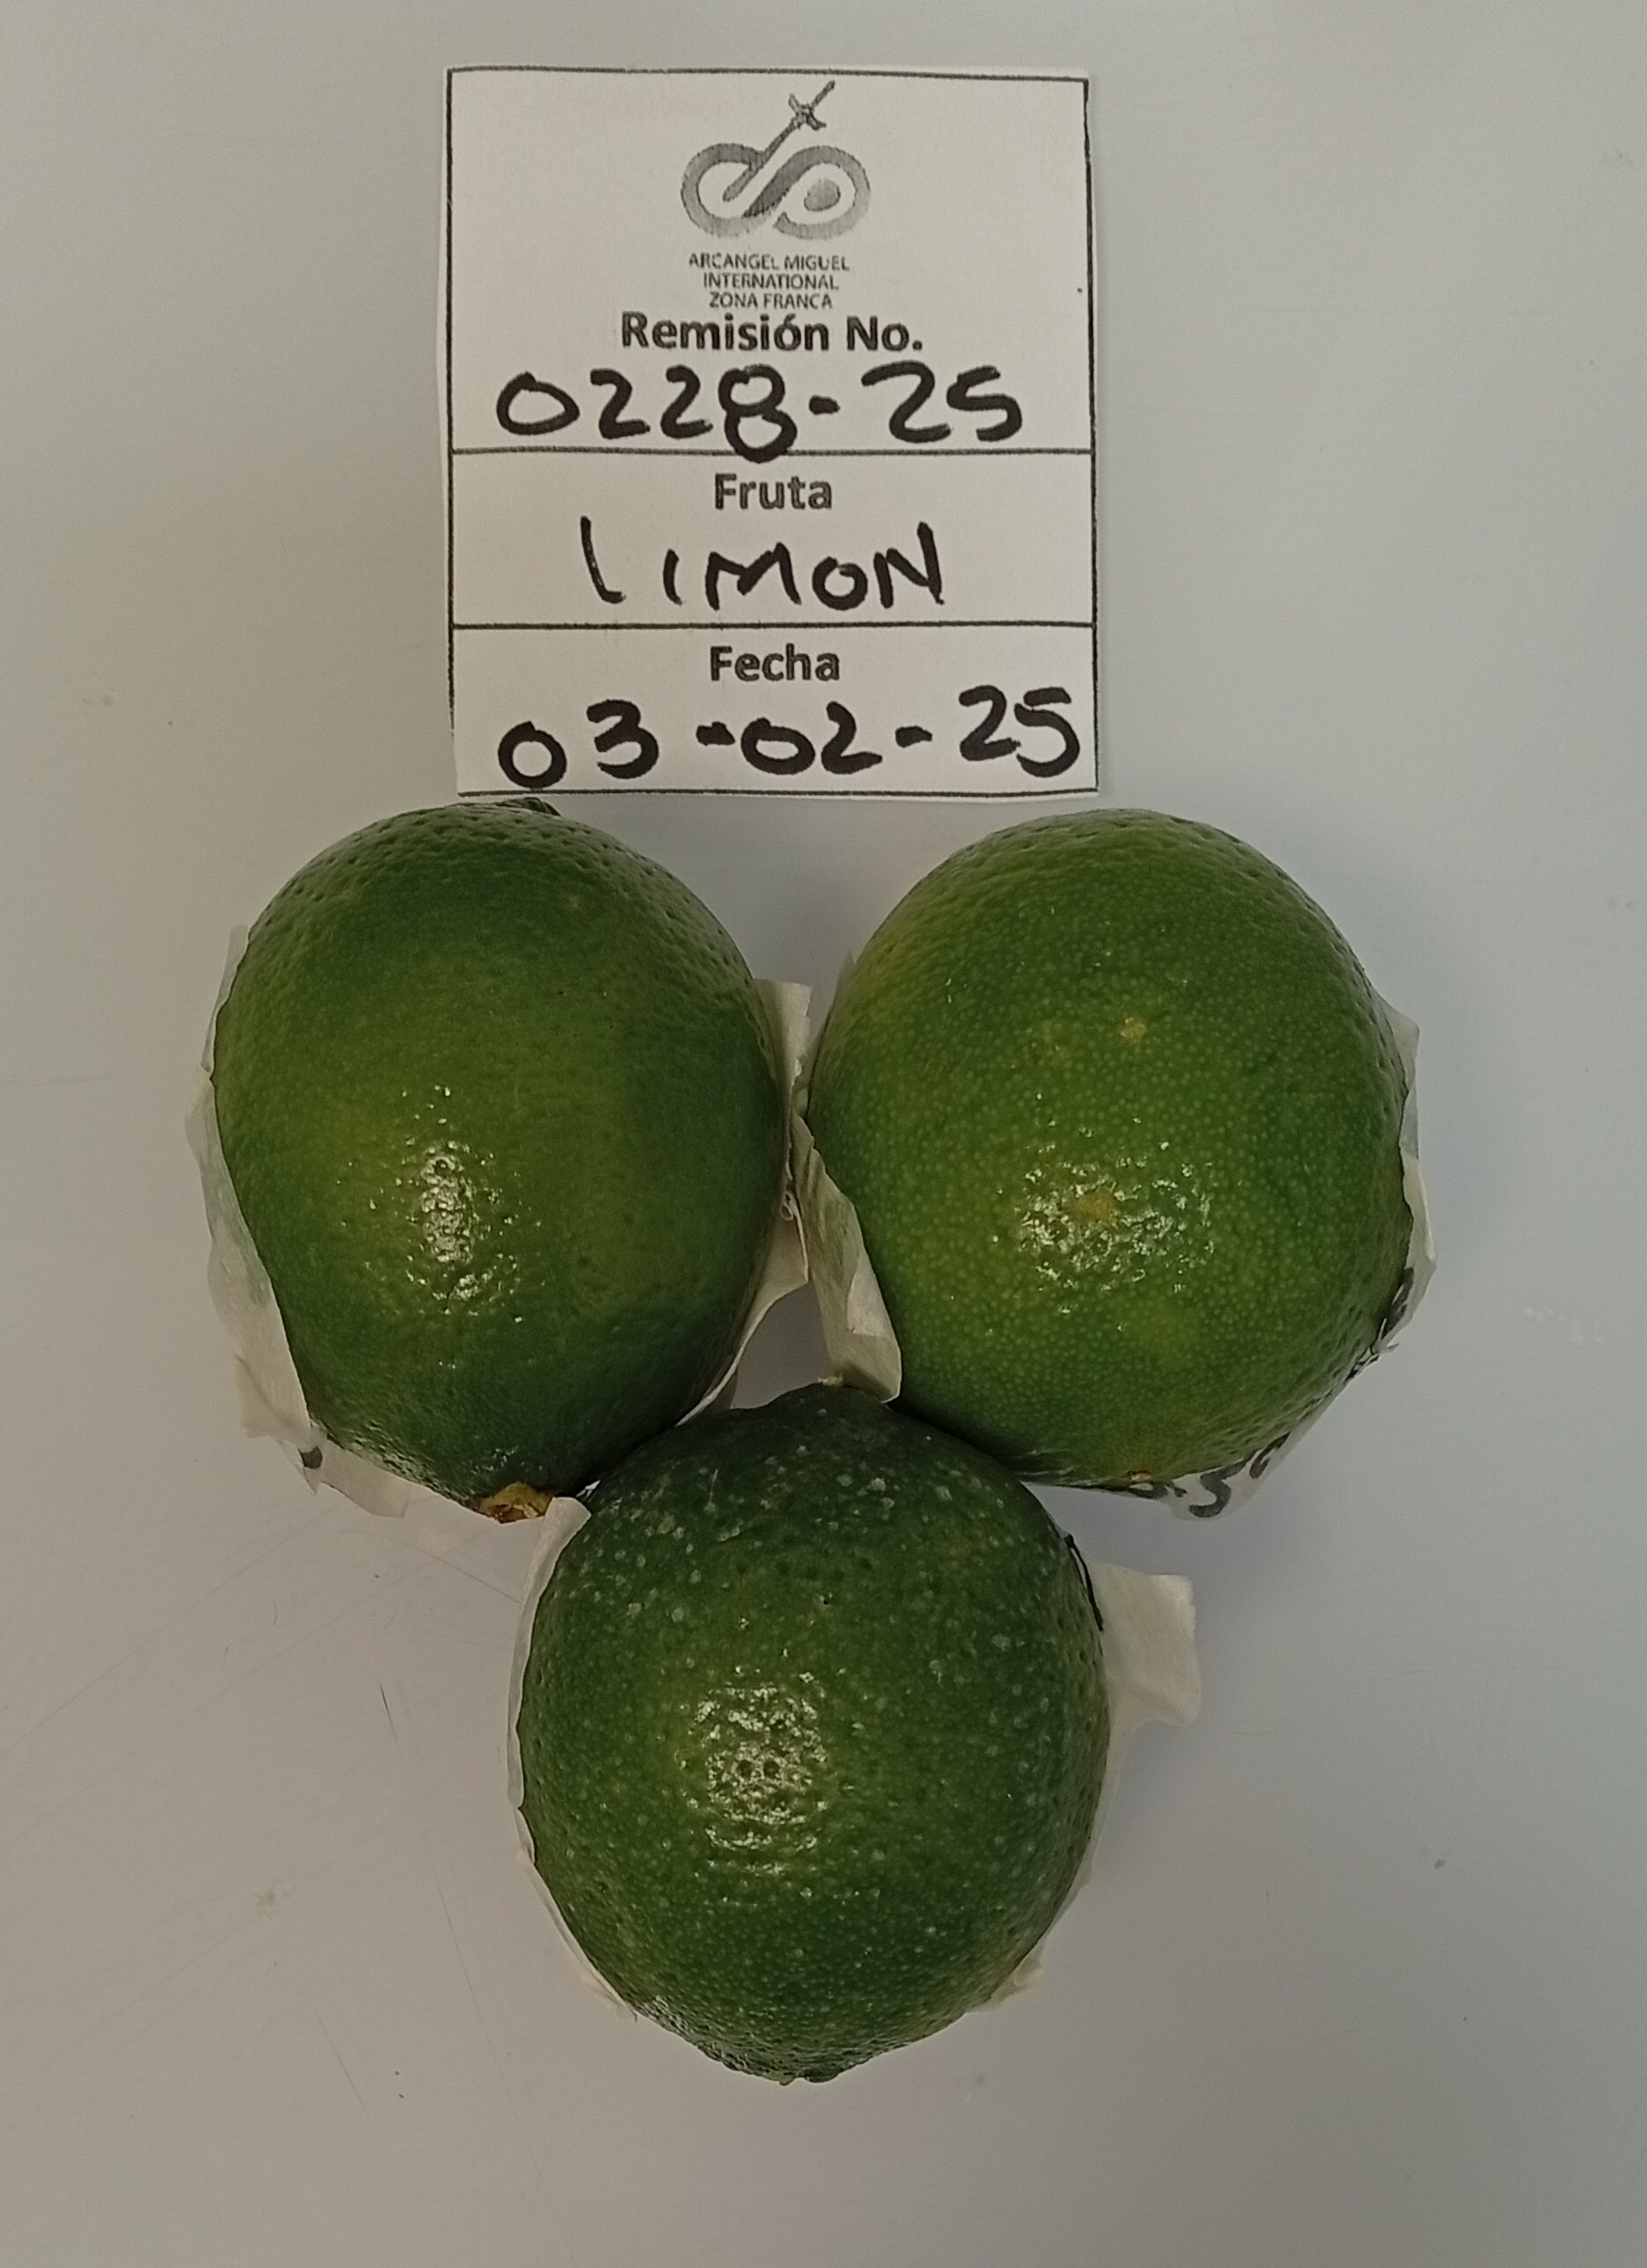 ARCANGEL MIGUEL
INTERNATIONAL
ZONA FRANCA
Remisión No.
0228-25
Fruta
LIMON
Fecha
03-02-25